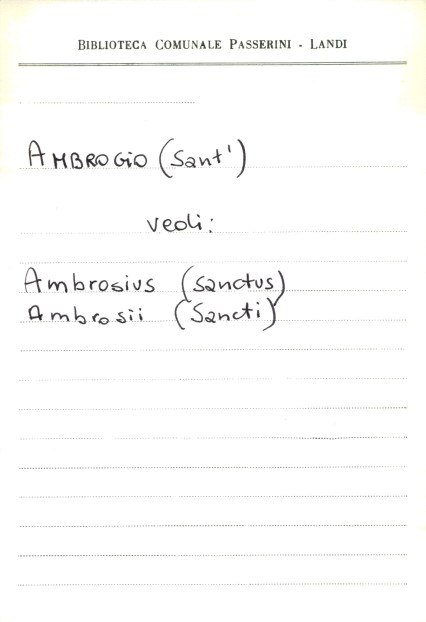 BIBLIOTECA COMUNALE PASSERINI - LANDI
AMBROGIO (Sant')
vedi:
Ambrosius (Sanctus)
Ambrosii (Sancti)